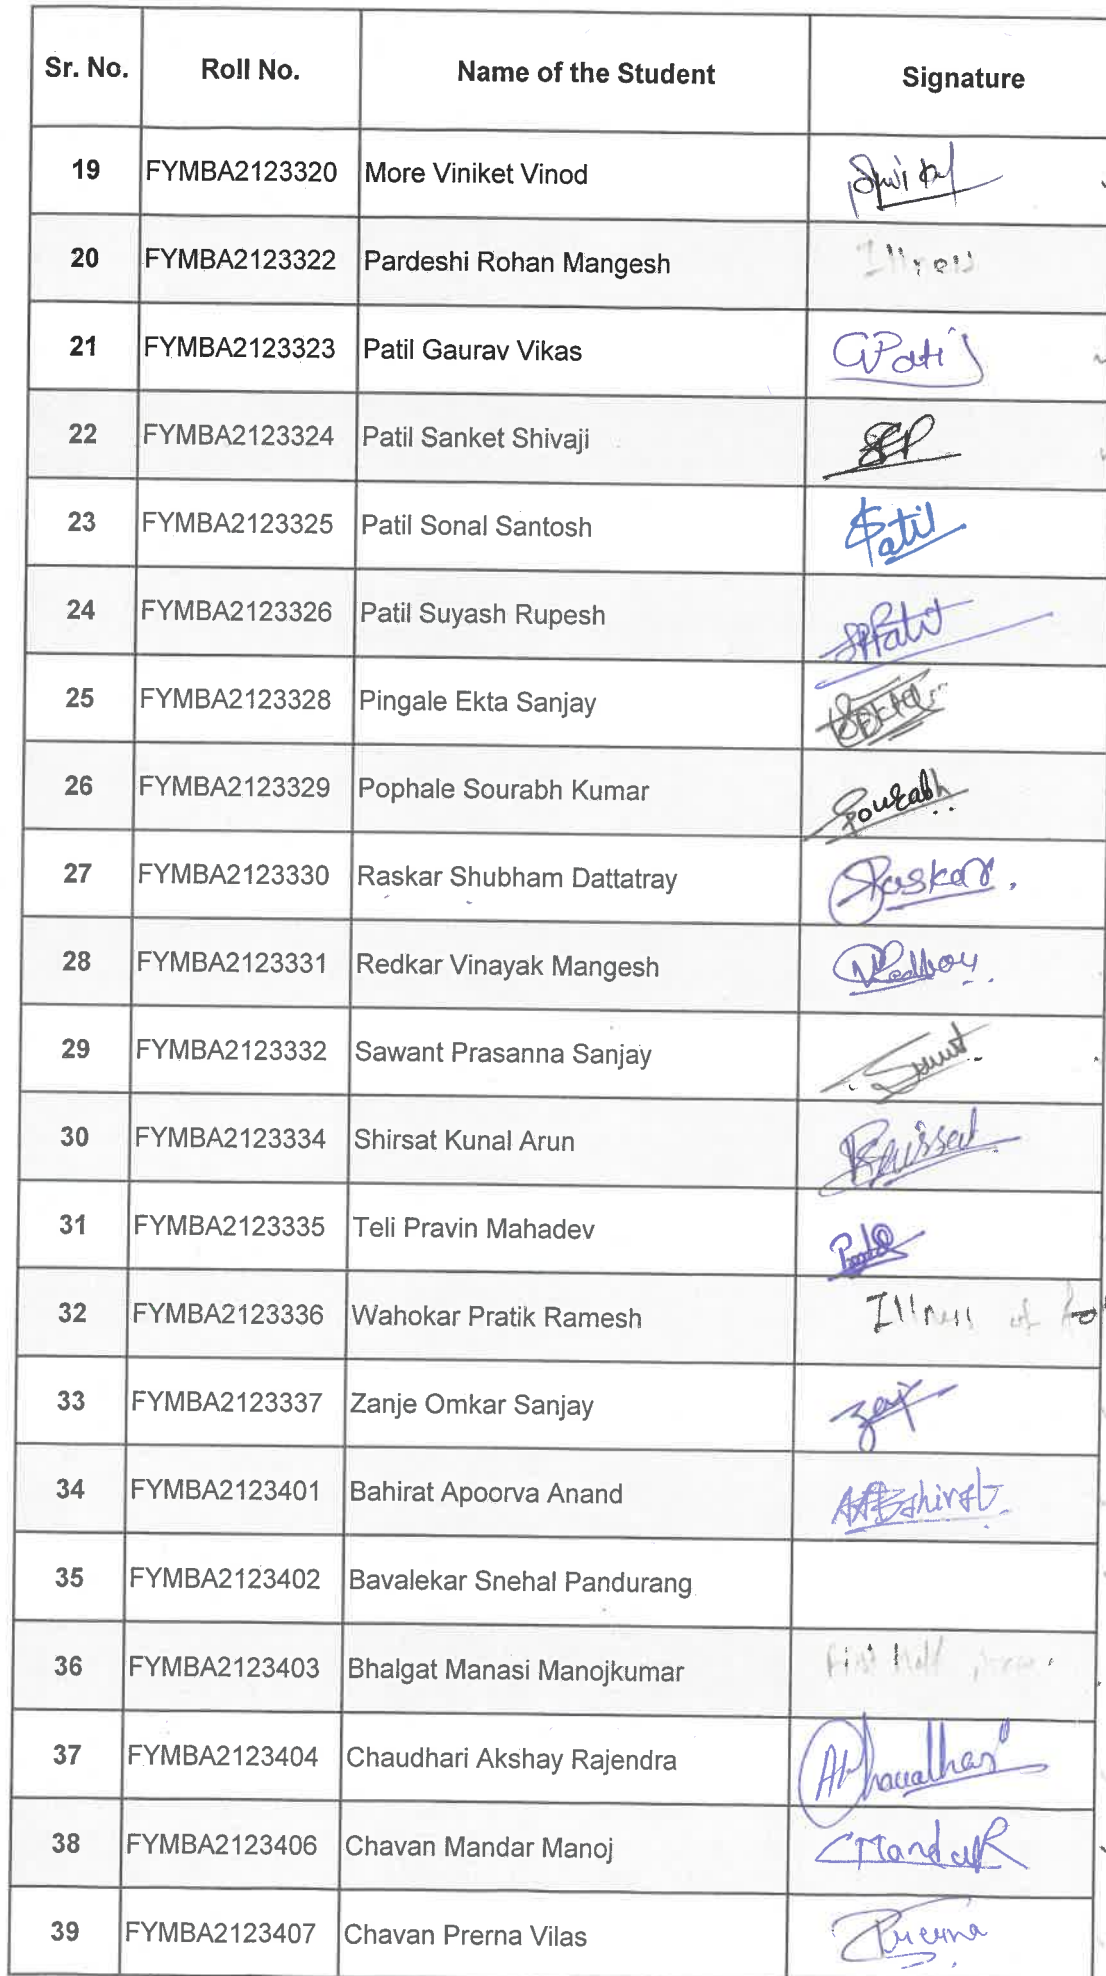 Sr. No. Roll No. Name of the Student Signature
19 FYMBA2123320 More Viniket Vinod
20 FYMBA2123322 Pardeshi Rohan Mangesh Illness
21 FYMBA2123323 Patil Gaurav Vikas GPatil
22 FYMBA2123324 Patil Sanket Shivaji
23 FYMBA2123325 Patil Sonal Santosh SPatil
24 FYMBA2123326 Patil Suyash Rupesh
25 FYMBA2123328 Pingale Ekta Sanjay
26 FYMBA2123329 Pophale Sourabh Kumar Sourabh
27 FYMBA2123330 Raskar Shubham Dattatray Raskar.
28 FYMBA2123331 Redkar Vinayak Mangesh
29 FYMBA2123332 Sawant Prasanna Sanjay
30 FYMBA2123334 Shirsat Kunal Arun
31 FYMBA2123335 Teli Pravin Mahadev
32 FYMBA2123336 Wahokar Pratik Ramesh Illness of
33 FYMBA2123337 Zanje Omkar Sanjay
34 FYMBA2123401 Bahirat Apoorva Anand AABahirat
35 FYMBA2123402 Bavalekar Snehal Pandurang
36 FYMBA2123403 Bhalgat Manasi Manojkumar First Half
37 FYMBA2123404 Chaudhari Akshay Rajendra
38 FYMBA2123406 Chavan Mandar Manoj
39 FYMBA2123407 Chavan Prerna Vilas Prerna